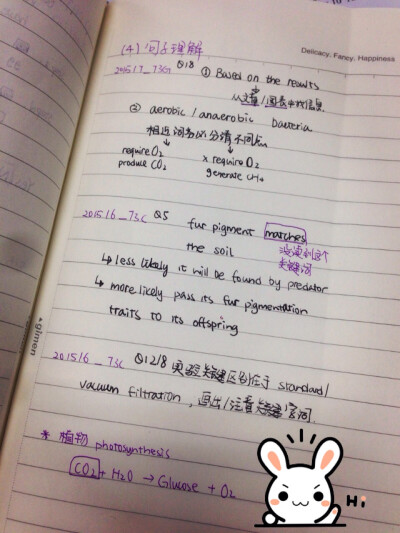 Delicacy, Fancy, Happiness
(4) 句子理解
2015/7_73G Q18 ① Based on the results
从文章/图表中找信息
② aerobic / anaerobic bacteria
相近词务必分清不同点
require O2 × require O2
produce CO2 generate CH4
2015/6_73C Q5 fur pigment matches
the soil 没读到这个
关键词
↳ less likely it will be found by predator
↳ more likely pass its fur pigmentation
traits to its offspring
2015/6_73C Q12/8 实验关键区别在于 standard/
vacuum filtration, 画出/注意关键字词.
* 植物 photosynthesis
CO2 + H2O → Glucose + O2
Hi